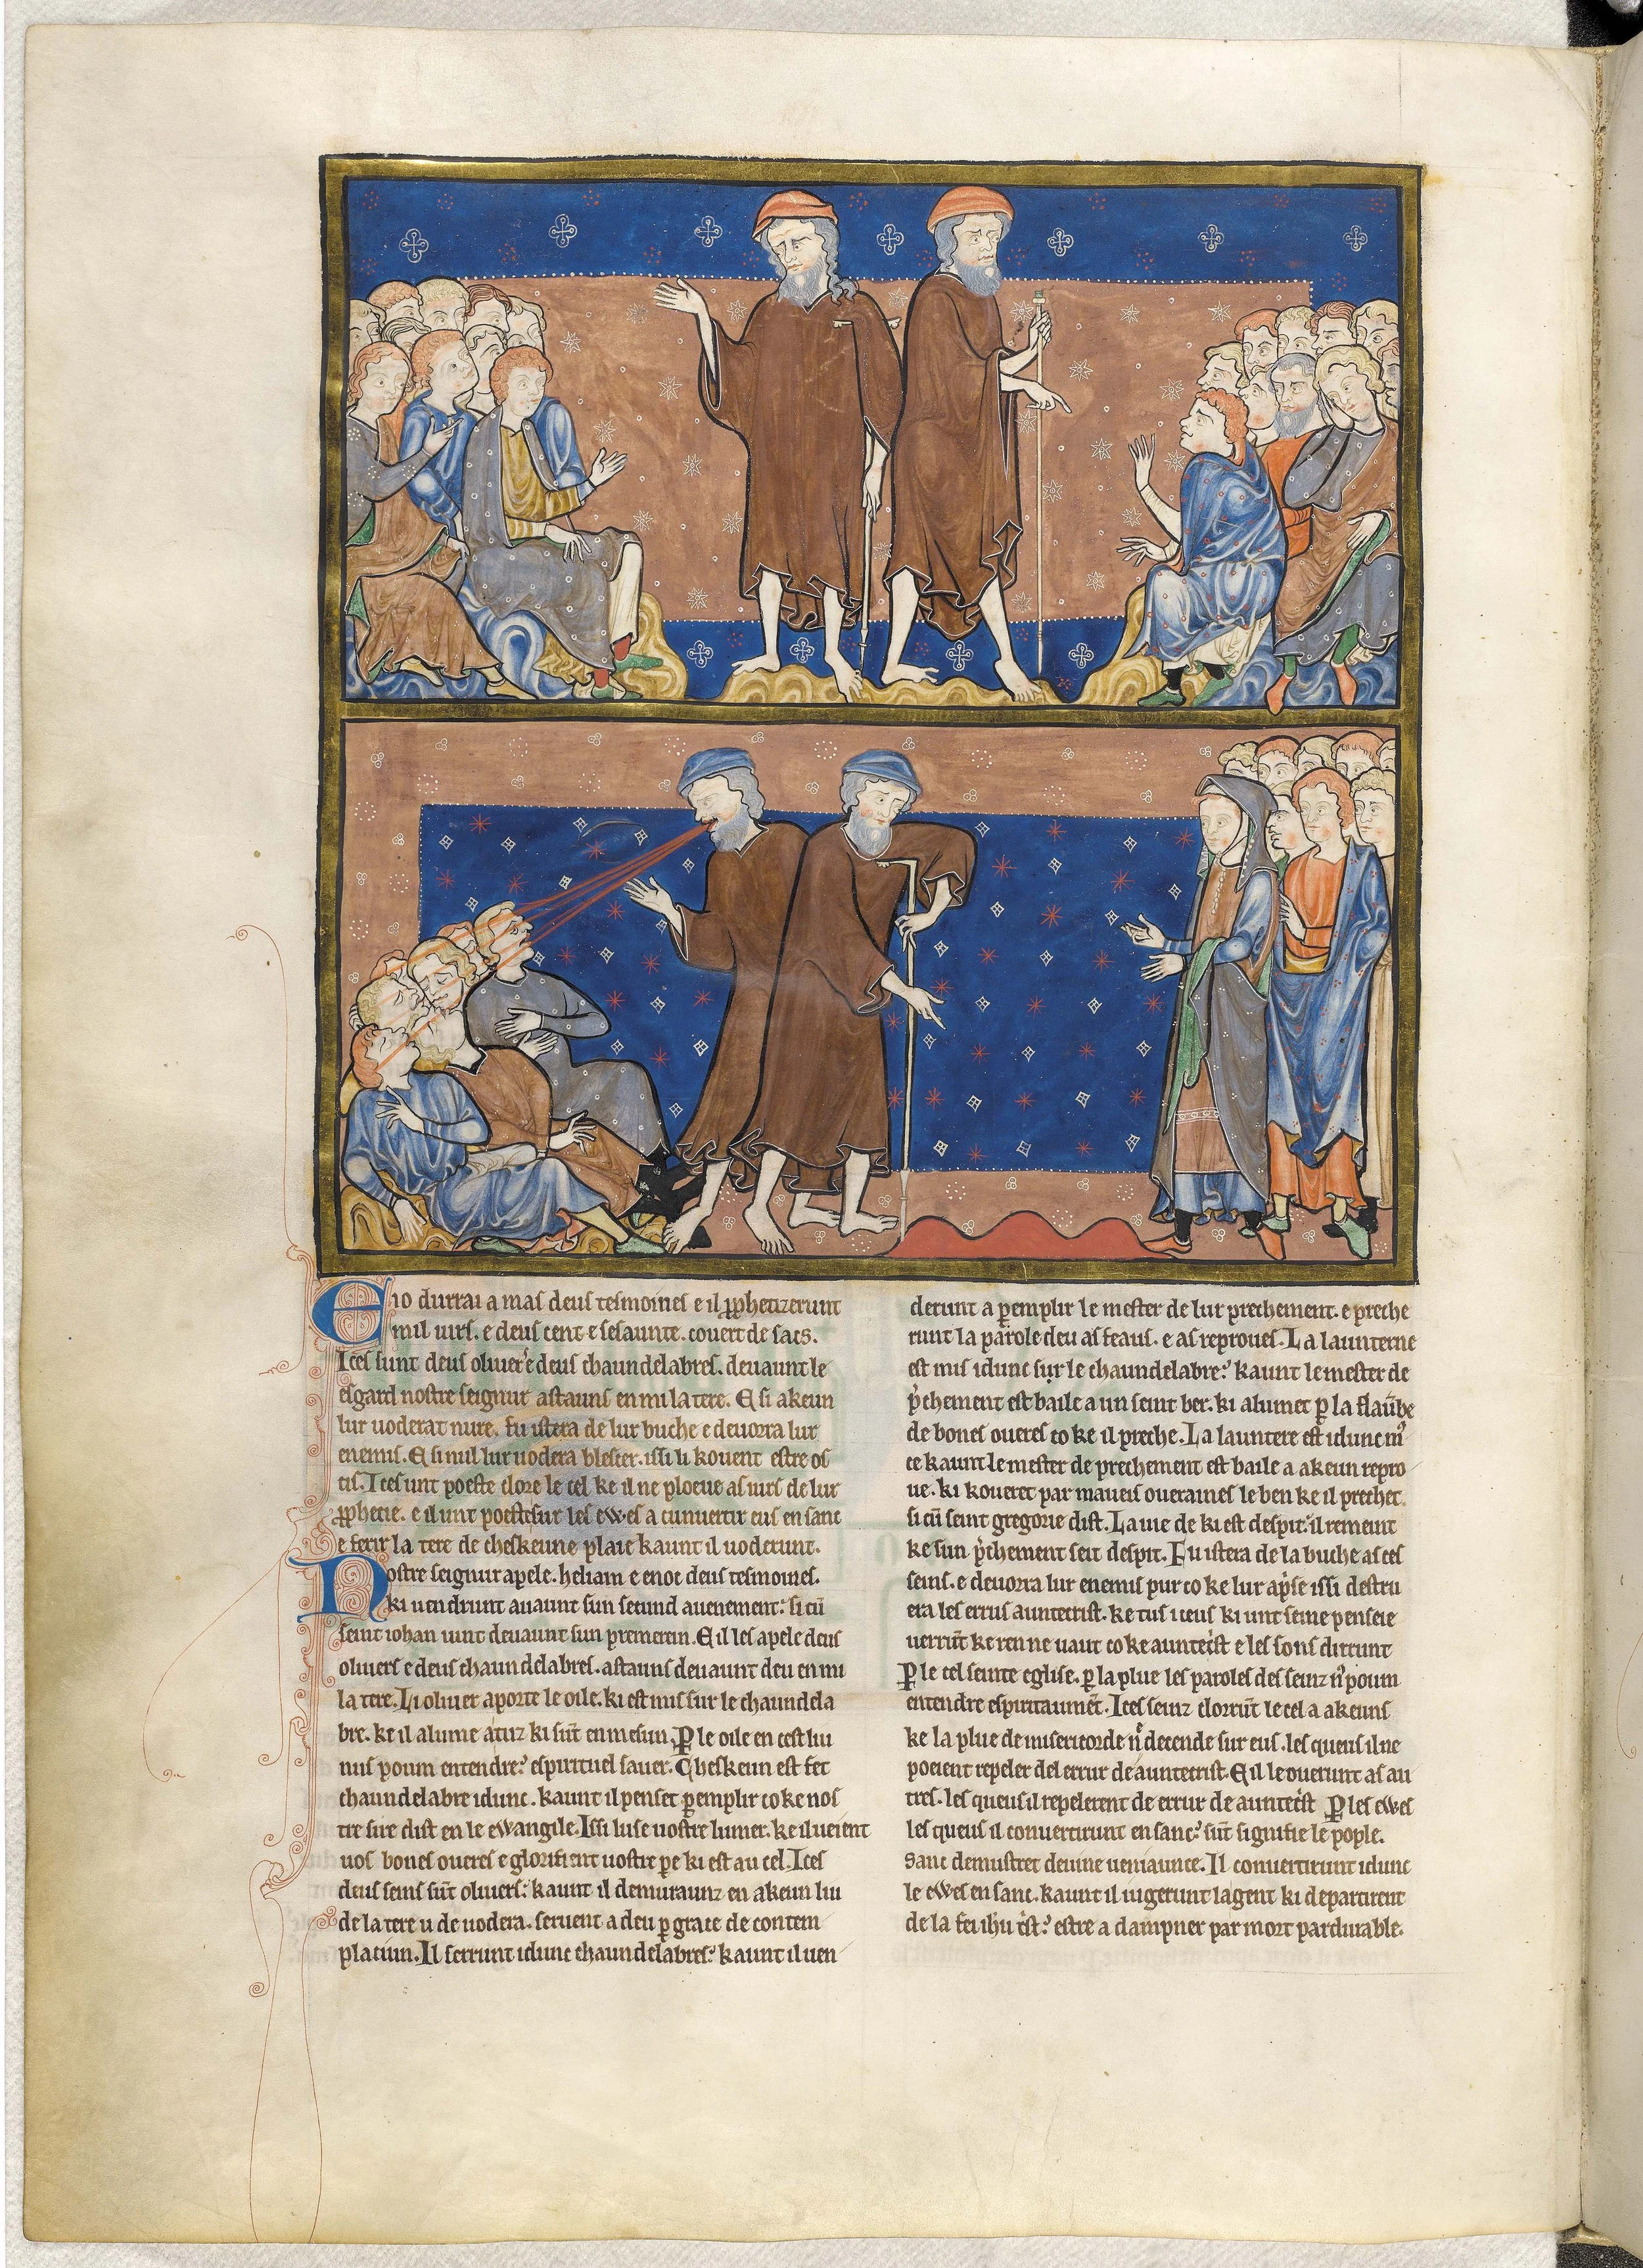 E io durrai a mas deus tesmoines e il pphetizerunt
mil uirs. e deus cent e sesaunte. couert de sacs.
Ices sunt deus oliuer e deus chaundelabres. deuaunt le
esgard nostre seignur astauns en mi la tere. E si akeun
lur uoderat nure. fu istera de lur buche e deuora lur
enemis. E si nul lur uodera blescer. issi li kouent estre oc
cis. Ices unt poeste clore le cel ke il ne ploeue as iurs de lur
pphecie. e il unt poeste sur les ewes a cunuertir eus en sanc
e ferir la tere de cheskeune plaie kaunt il uoderunt.
Nostre seignur apele. heliam e enoc deus tesmoines.
ki uendrunt auaunt sun secund auenement: si cū
seint iohan uint deuaunt sun premerein. E il les apele deus
oliuers e deus chaundelabres. astauns deuaunt deu en mi
la tere. Li oliuer aporte le oile. ki est mis sur le chaundela
bre. ke il alume a tuz ki sūt en mesun. P le oile en cest liu
nus poum entendre: espirituel sauer. Cheskeun est fet
chaundelabre idunc. kaunt il penset pemplir co ke nos
tre sire dist en le ewangile. Issi luise uostre lumer. ke il ueient
uos bones oueres e glorifient uostre pe ki est au cel. Ices
deus seins sūt oliuers: kaunt il demuraunz en akeun liu
de la tere u de uodera. seruent a deu p grace de contem
placiun. Il serrunt idunc chaundelabres: kaunt il uen
derunt a pemplir le mester de lur prechement. e preche
runt la parole deu as feaus. e as reproues. La launterne
est mis idunc sur le chaundelabre: kaunt le mester de
pchement est baile a un seint ber. ki alumet p la flaūbe
de bones oueres co ke il preche. La launtere est idunc
ce kaunt le mester de prechement est baile a akeun repro
ue. ki koueret par maueis oueraines le ben ke il prechet.
si cū seint gregorie dist. La uie de ki est despit: il remeint
ke sun pchement seit despit. Fu istera de la buche as ces
seins. e deuora lur enemis pur co ke lur apse issi destru
era les errus auntecrist. ke tus iceus ki unt seine penseie
uerrūt ke ren ne uaut co ke auntecist e les sons dirrunt
P le cel seinte eglise. p la plue les paroles des seinz n poum
entendre espiritaumēt. Ices seinz clorrūt le cel a akeuns
ke la plue de misericorde n decende sur eus. les queus il ne
poeient repeler del errur de auntecrist. E il le ouerunt as au
tres. les queus il repelerent de errur de auntecist P les ewes
les queus il conuertirunt en sanc: sūt signifie le pople.
Sanc demustret deuine ueniaunce. Il conuertirunt idunc
le ewes en sanc. kaunt il iugerunt la gent ki departirent
de la fei ihu cist: estre a dampner par mort pardurable.